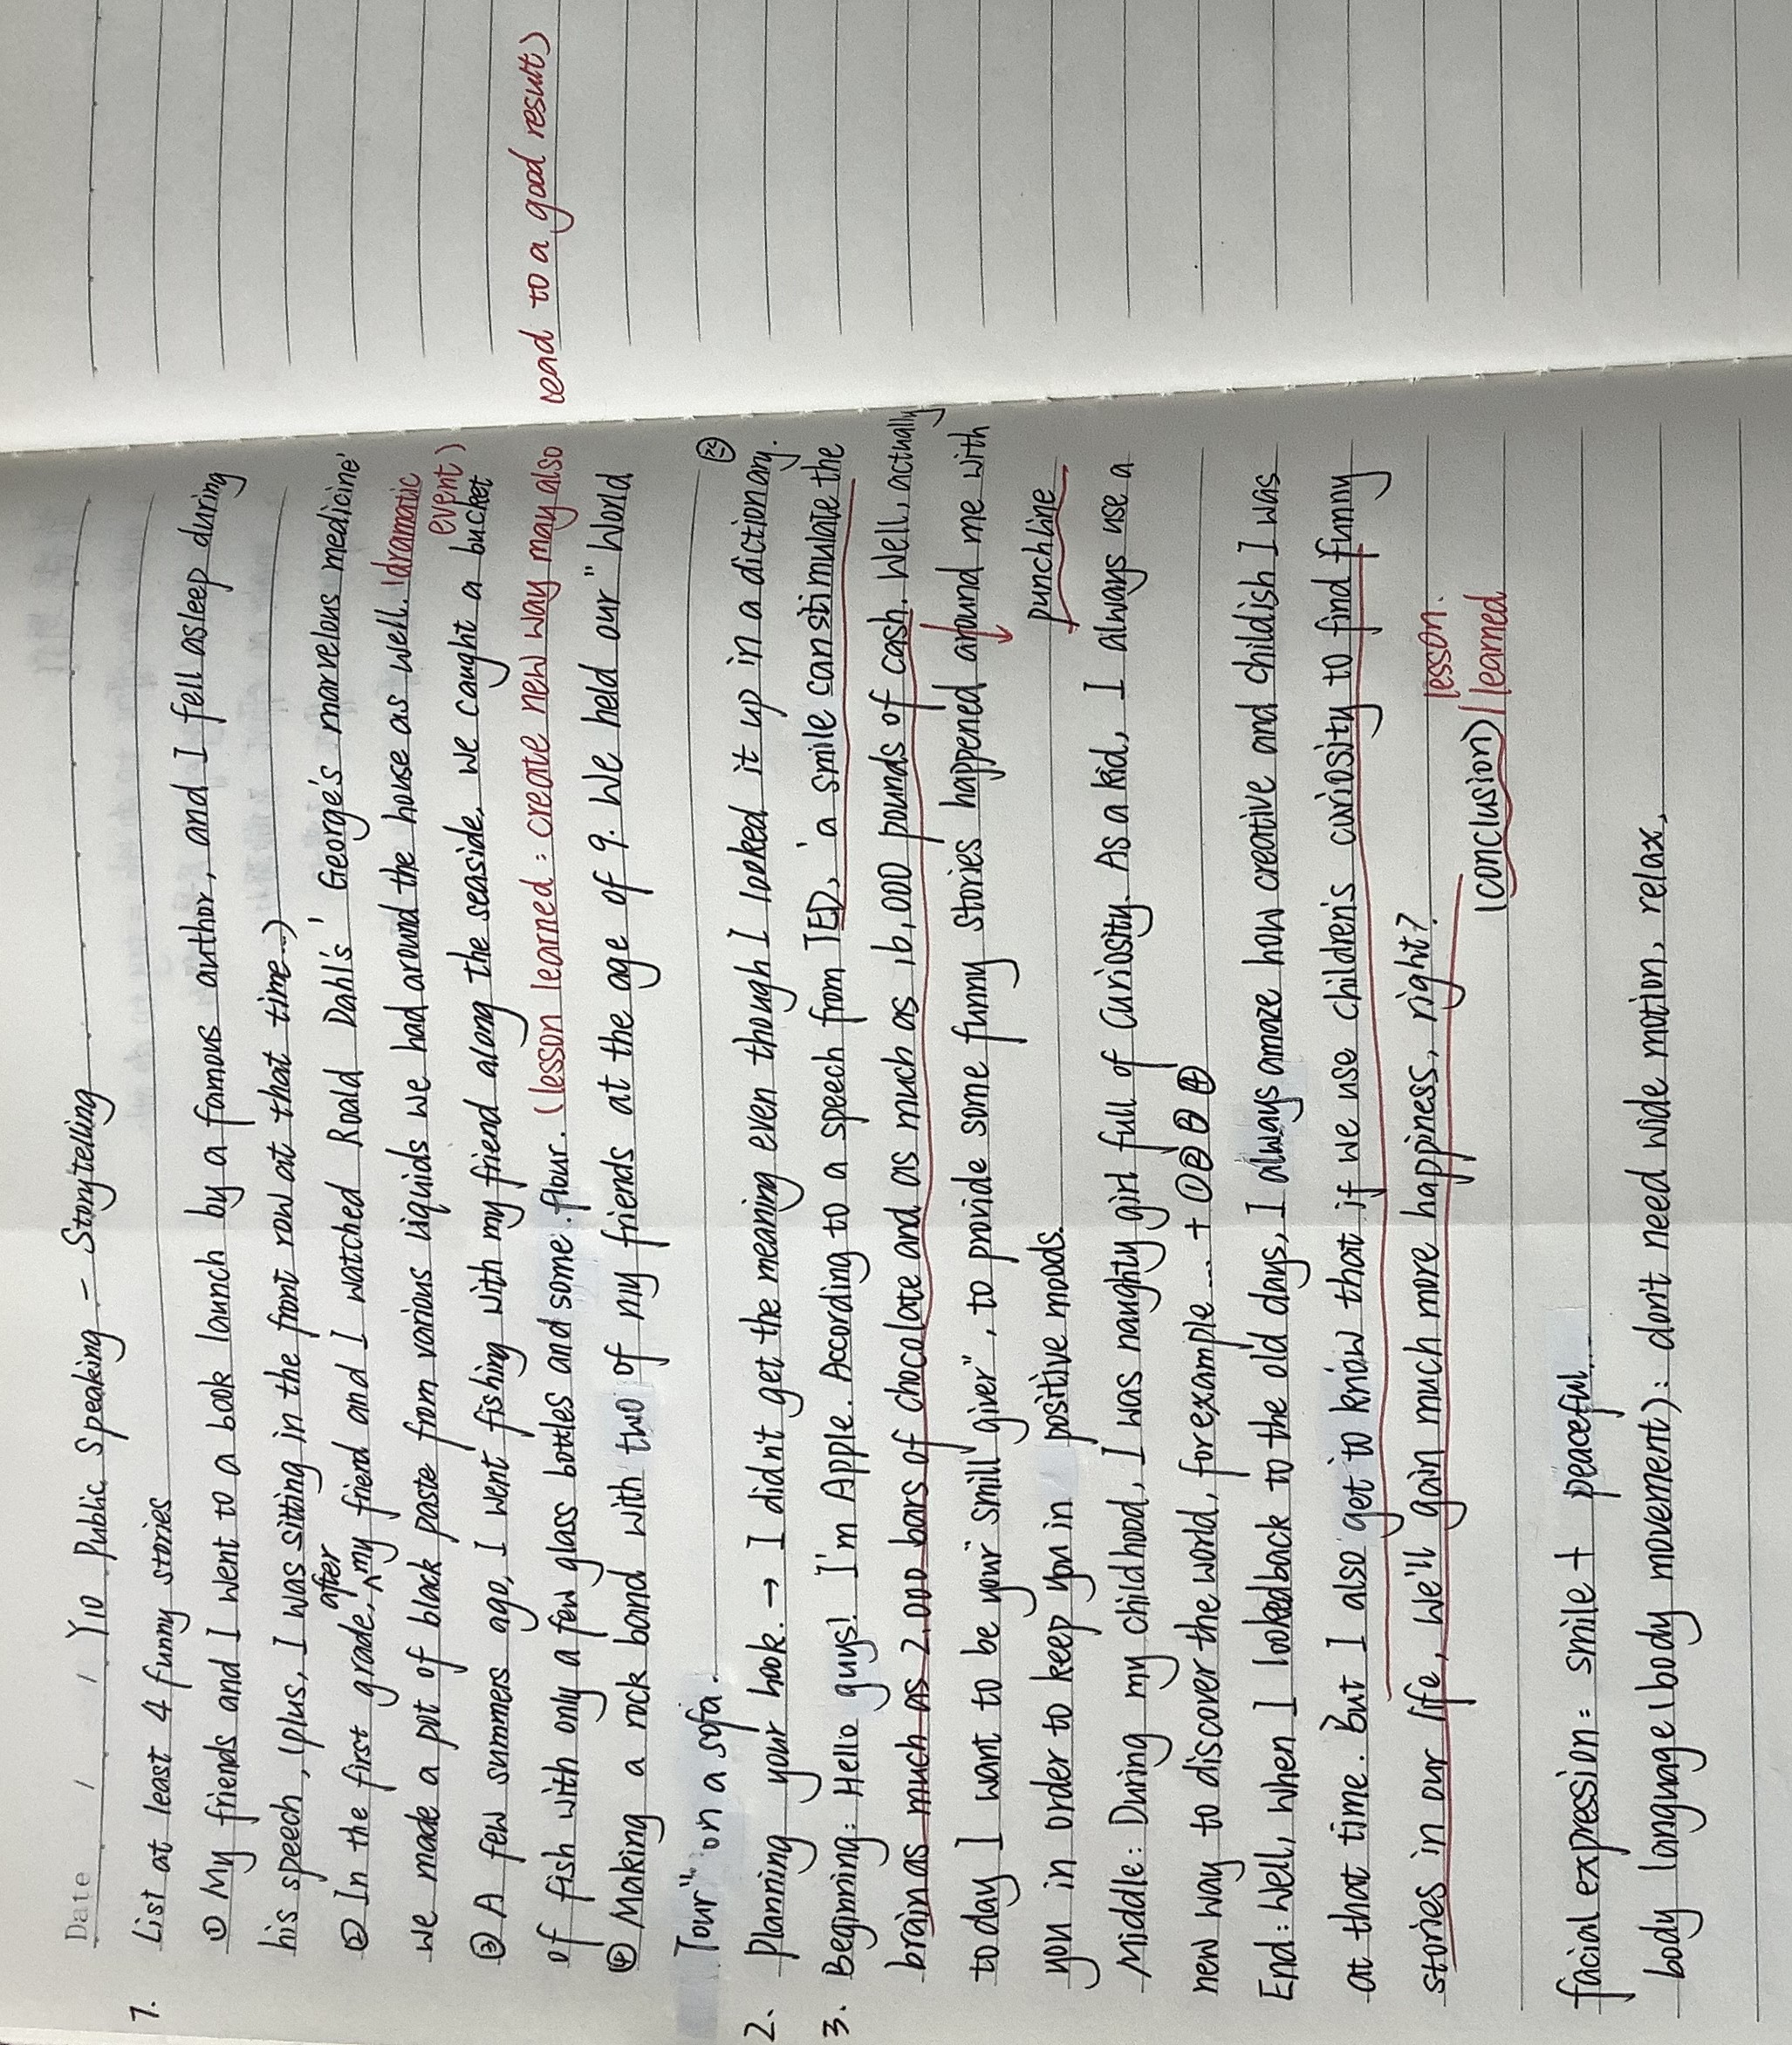 Date / / Y10 Public Speaking - Storytelling
1. List at least 4 funny stories
① My friends and I went to a book launch by a famous author, and I fell asleep during
his speech, (plus, I was sitting in the front row at that time...)
② In the first grade, after my friend and I watched Roald Dahl's 'George's marvelous medicine'
we made a pot of black paste from various liquids we had around the house as well. (dramatic
event)
③ A few summers ago, I went fishing with my friend along the seaside. we caught a bucket
of fish with only a few glass bottles and some flour. (lesson learned: create new way may also
lead to a good result)
④ Making a rock band with two of my friends at the age of 9. We held our "World
Tour" on a sofa.
2. Planning your hook. → I didn't get the meaning even though I looked it up in a dictionary.
3. Beginning: Hello guys! I'm Apple. According to a speech from TED, 'a smile can stimulate the
brain as much as 2,000 bars of chocolate and as much as 16,000 pounds of cash. Well, actually
today I want to be your "smill giver", to provide some funny stories happened around me with
you in order to keep you in positive moods. punchline
Middle: During my childhood, I was naughty girl full of curiosity. As a kid, I always use a
new way to discover the world, for example ... + ① ② ③ ④
End: Well, when I looked back to the old days, I always amaze how creative and childish I was
at that time. But I also get to know that if we use children's curiosity to find funny
stories in our life, we'll gain much more happiness, right? lesson
(conclusion) learned
facial expression: smile + peaceful...
body language (body movement): don't need wide motion, relax.